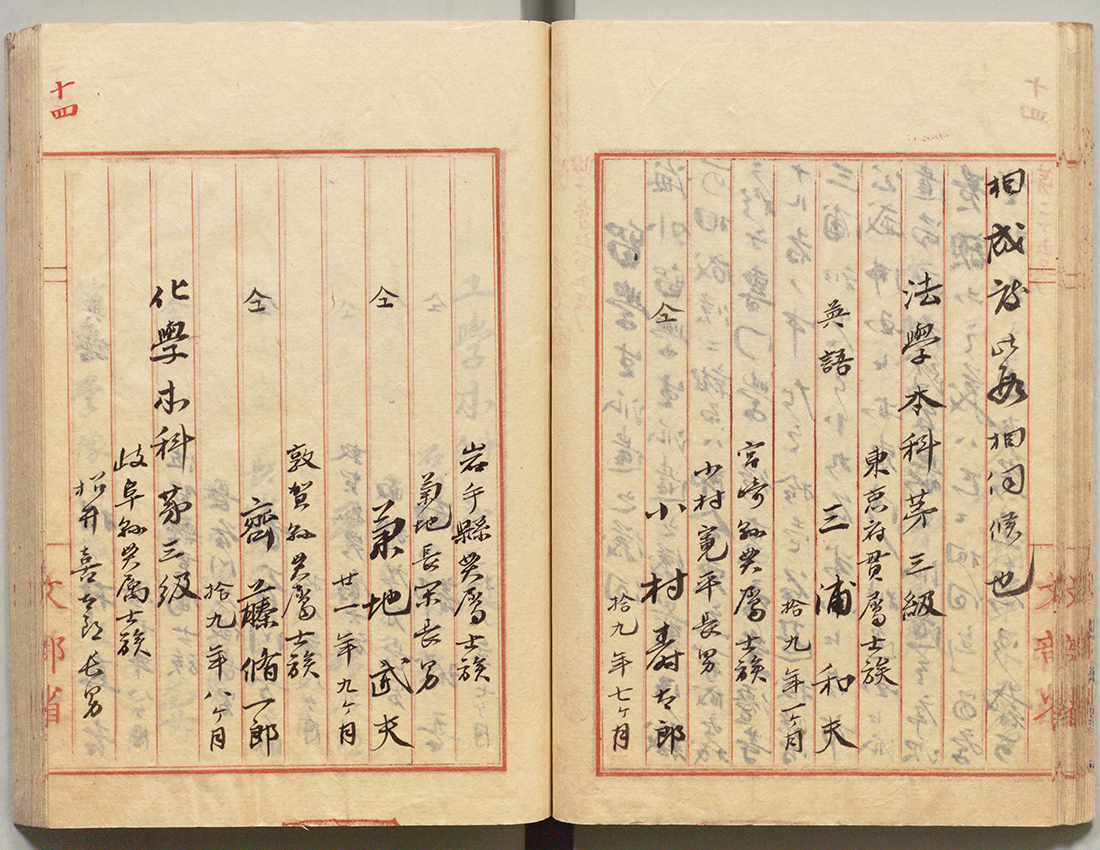 相成度此段相伺候也
法學本科第三級
東京府貫屬士族
英語 三浦和夫
拾九年一ヶ月
宮崎縣貫屬士族
小村寛平長男
仝 小村寿太郎
拾九年七ヶ月
十四
岩手縣貫屬士族
菊地長閑長男
仝 菊地武夫
廿一年九ヶ月
敦賀縣貫屬士族
仝 齊藤脩一郎
拾九年八ヶ月
化學本科第三級
岐阜縣貫属士族
松井喜太郎長男
文部省